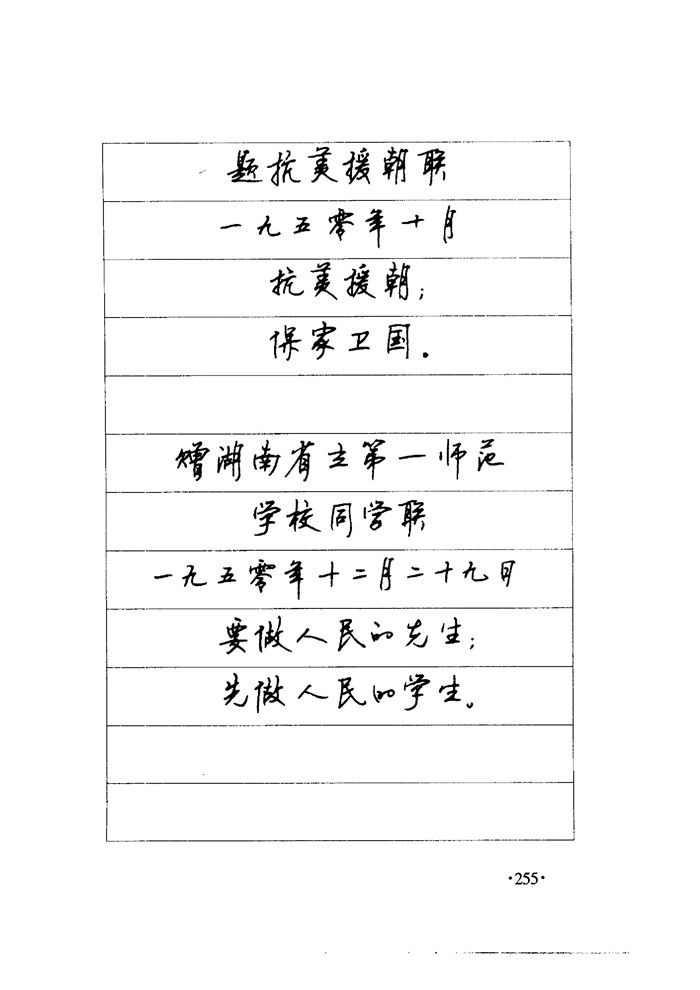 题抗美援朝联
一九五零年十月
抗美援朝；
保家卫国.
赠湖南省立第一师范
学校同学联
一九五零年十二月二十九日
要做人民的先生；
先做人民的学生。
·255·